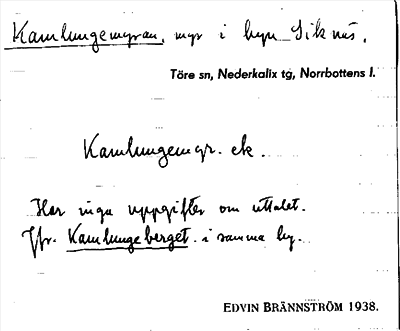 Kamlungemyran, myr i byn Siknäs,
Töre sn, Nederkalix tg, Norrbottens l.
Kamlungemyr. ek.
Har inga uppgifter om uttalet.
Jfr. Kamlungeberget i samma by.
EDVIN BRÄNNSTRÖM 1938.